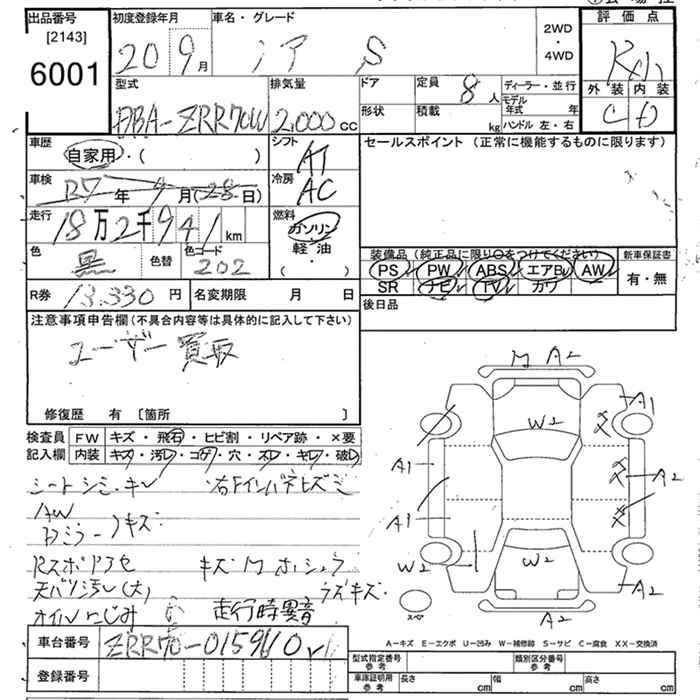 出品番号 初度登録年月 車名・グレード 2WD・4WD 評価点
[2143]
6001 20 9月 ノア S
外装 内装
C D
型式 排気量 ドア 定員 8人 ディーラー・並行
DBA-ZRR70W 2,000cc 形状 積載 kg モデル年式 年
ハンドル 左・右
車歴 自家用・( ) シフト AT セールスポイント (正常に機能するものに限ります)
車検 R7年9月(28日) 冷房 AC
走行 18万2千941km 燃料 ガソリン・軽油・( )
色 黒 色替 色コード 202
装備品 (純正品に限り○をつけてください) 新車保証書
PS PW ABS エアB AW 有・無
SR ナビ TV カワ
R券 13,330円 名変期限 月 日 後日品
注意事項申告欄 (不具合内容等は具体的に記入して下さい)
ユーザー買取
修復歴 有 [箇所 ]
検査員 FW キズ・飛石・ヒビ割・リペア跡・×要
記入欄 内装 キズ・汚レ・コゲ・穴・スレ・キレ・破レ
シートシミ・キレ 右Fインパネヒズミ
AW
ドミラーキズ
キズ M ホシュウ
天バリ汚レ(大) ラズキズ
オイルにじみ 走行時異音
M A2
A1
W2
A1
A2
A1
W2
W2
A2
A2
スペア
A-キズ E-エクボ U-凹み W-補修跡 S-サビ C-腐食 XX-交換済
車台番号 ZRR70-0159610
登録番号
型式指定番号 参考 類別区分番号 参考
車庫証明用 参考 長さ cm 幅 cm 高さ cm